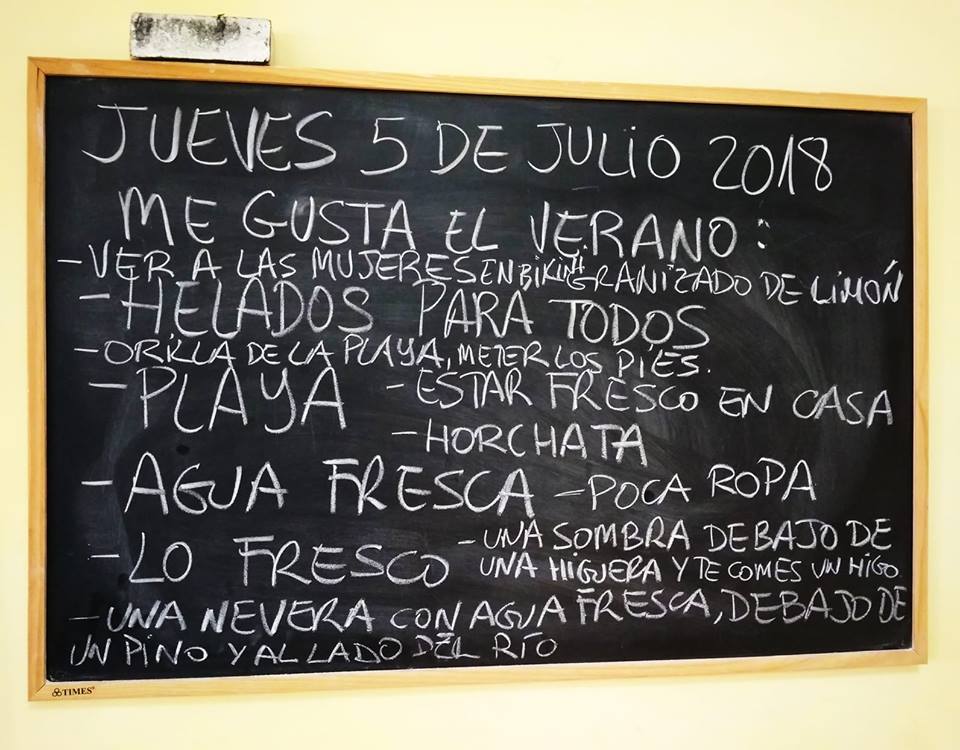 JUEVES 5 DE JULIO 2018
ME GUSTA EL VERANO:
-VER A LAS MUJERES EN BIKINI -GRANIZADO DE LIMÓN
-HELADOS PARA TODOS
-ORILLA DE LA PLAYA, METER LOS PIES.
-PLAYA -ESTAR FRESCO EN CASA
-HORCHATA
-AGUA FRESCA -POCA ROPA
-LO FRESCO -UNA SOMBRA DEBAJO DE
UNA HIGUERA Y TE COMES UN HIGO
-UNA NEVERA CON AGUA FRESCA, DEBAJO DE
UN PINO Y AL LADO DEL RÍO
TIMES®